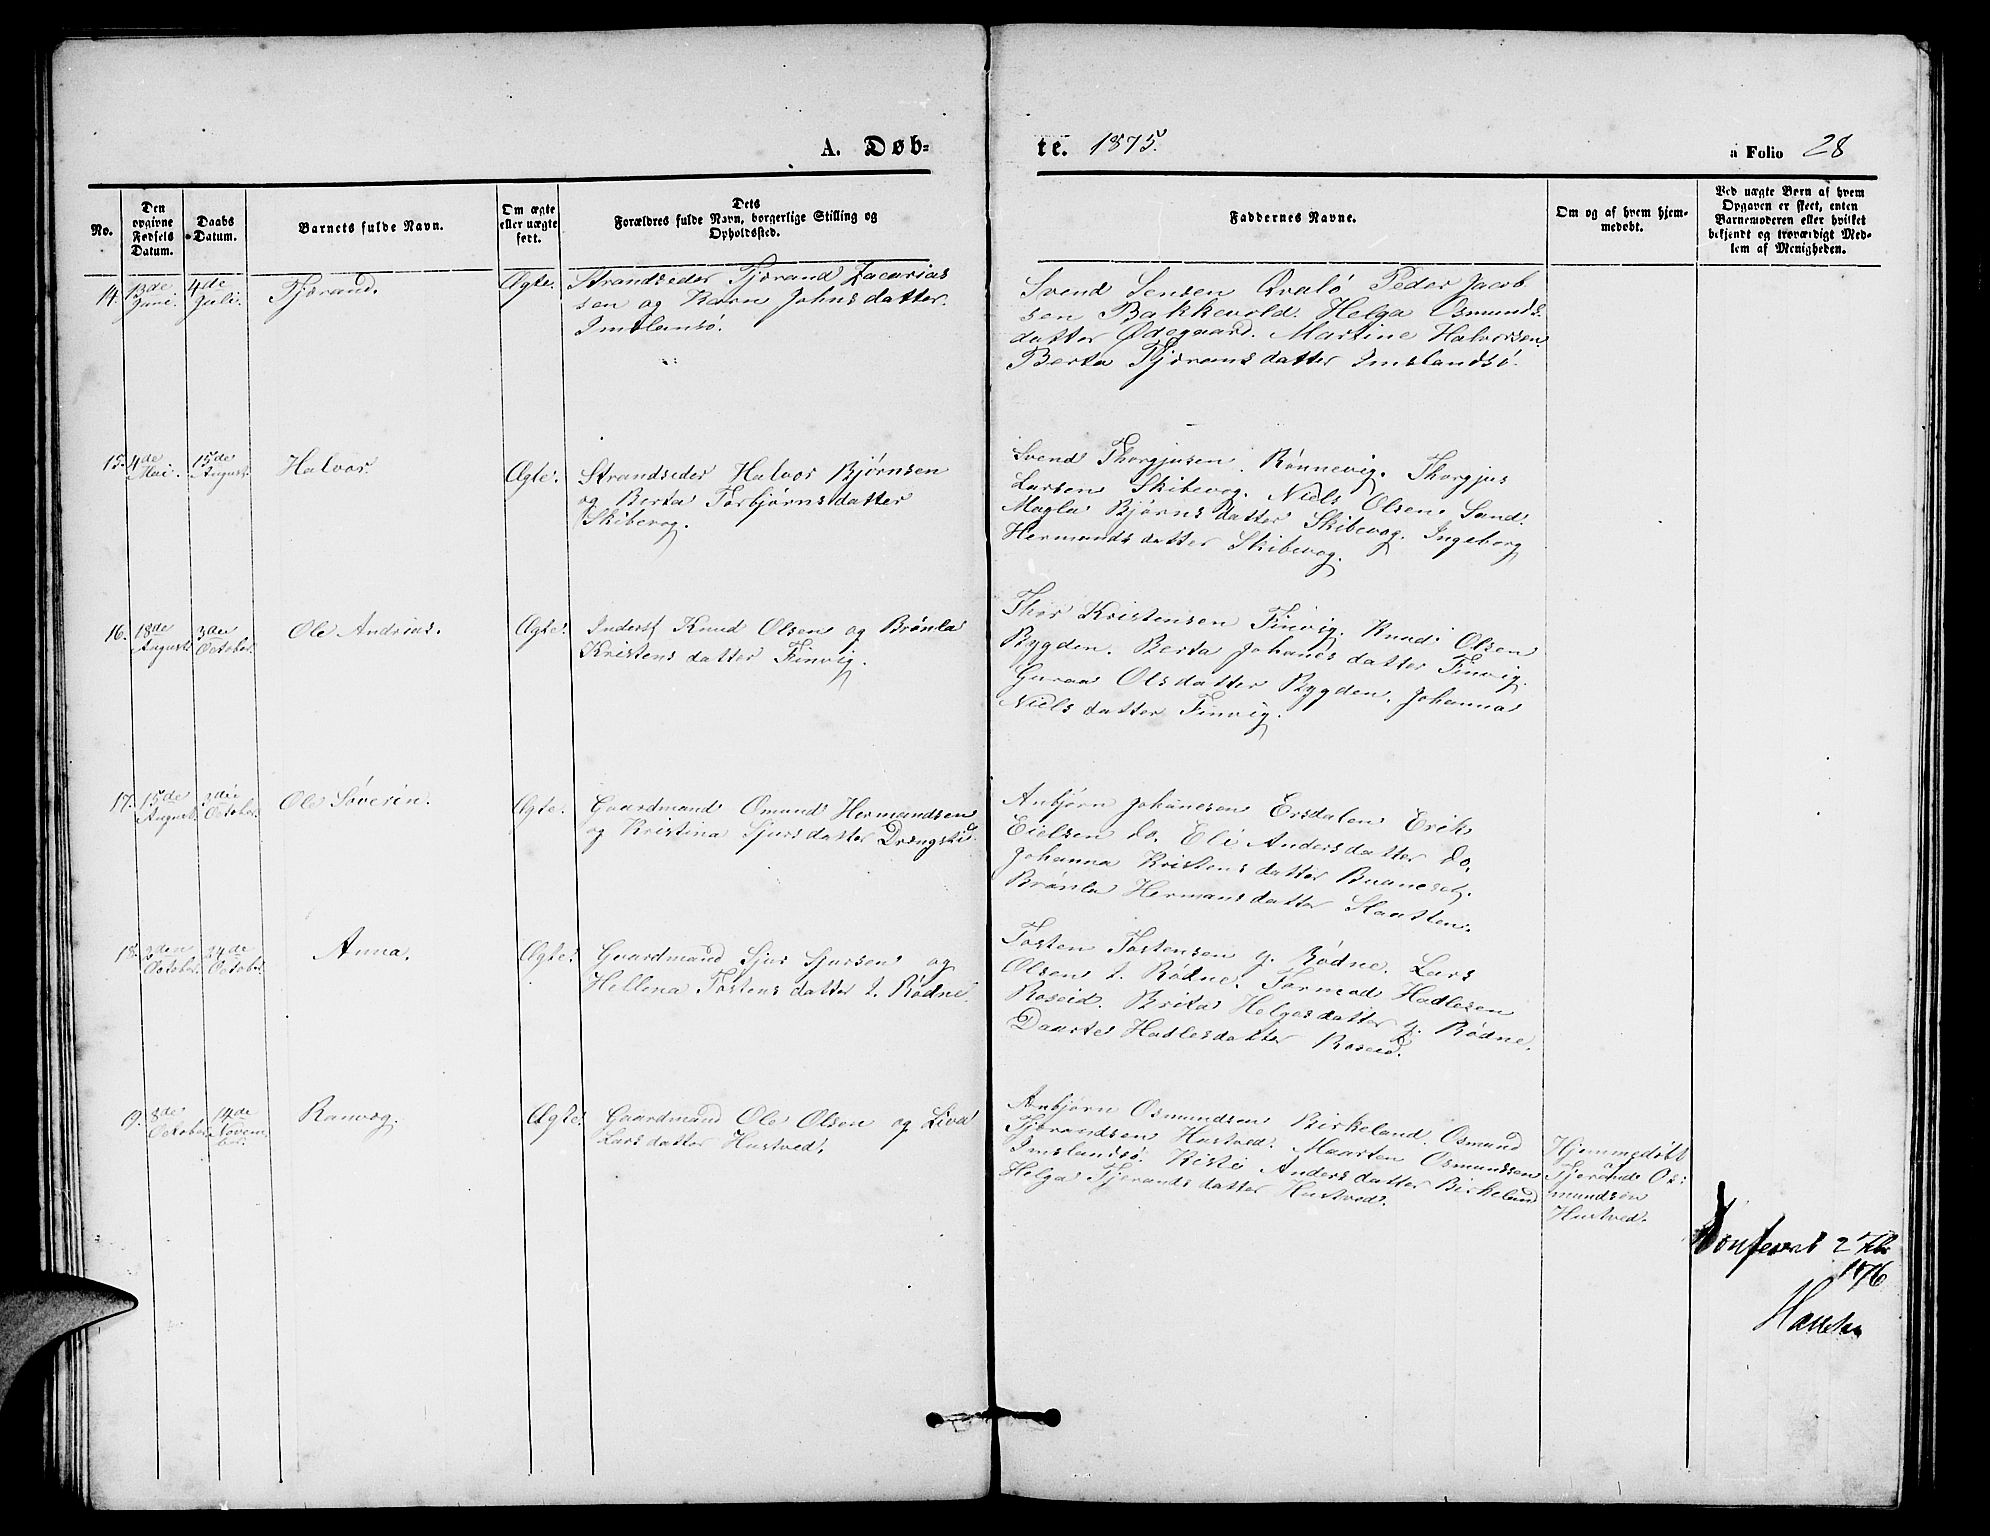 A. Døb-
te. 1875.
a Folio 28
No.
Den
opgivne
Fødsels
Datum.
Daabs
Datum.
Barnets fulde Navn.
Om ægte
eller uægte
født.
Dets
Forældres fulde Navn, borgerlige Stilling og
Opholdssted.
Faddernes Navne.
Om og af hvem hjem-
medøbt.
Ved uægte Børn af hvem
Opgaven er skeet, enten
Barnemoderen eller hvilket
bekjendt og troværdigt Med-
lem af Menigheden.
14. 13de Juni. 4de Juli. Tjórand. Ægte. Strandseder Tjórand Zacarias
sen og Karn Johnsdatter.
Imslansó.
Svend Jensen Qvaló Peder Jacob
sen Bakkevold. Helga Osmunds
datter Ødegaard. Martine Halvorsen.
Berta Tjóransdatter Imslandsó.
15. 4de Mai. 15de August. Halvor. Ægte. Strandseder Halvor Bjørnsen
og Berta Torbjørnsdatter
Skibevog.
Svend Thorgjusen Rónnevig. Thorgjus
Larsen Skibevog. Niels Olsen Sand.
Magla Bjørnsdatter Skibevog. Ingeborg
Hermundsdatter Skibevog.
16. 18de August 3die October. Ole Andrias. Ægte. Inderst Knud Olsen og Brónla
Kristensdatter Finvig.
Thor Kristensen Finvig. Knud Olsen
Bygden. Berta Johanesdatter Finvig.
Guraa Olsdatter Bygden. Johanna
Nielsdatter Finvig.
17. 15de August. 3die October. Ole Sóverin. Ægte. Gaardmand Omund Hermandsen
og Kristina Sjursdatter Drengstid.
Anbjørn Johanesen Ersdalen Erik
Eielsen do. Eli Andersdatter do.
Johanna Kristensdatter Buaneset.
Brónla Hermansdatter Slaatten.
18. 3den October. 24de October. Anna. Ægte. Gaardmand Sjur Sjursen og
Hellena Tostensdatter t. Ródne.
Tosten Tostensen g. Ródne. Lars
Olsen t. Ródne. Tormod Hadlesen
Roseid. Brita Helgesdatter g. Ródne.
Daarte Hadlesdatter Roseid.
9. 8de October. 14de Novem-
ber. Ranvog. Ægte. Gaardmand Ole Olsen og Siva
Larsdatter Hustved.
Anbjørn Osmundsen Birkeland. Osmund
Tjórandsen Hustved. Maarten Osmundsen
Imslandsó. Kisti Andersdatter Birkeland
Helga Tjerandsdatter Hustved.
Hjemmedøbt
af
Tjerand Os-
mundsen
Hustved.
Konfereret 2 Feb
1876